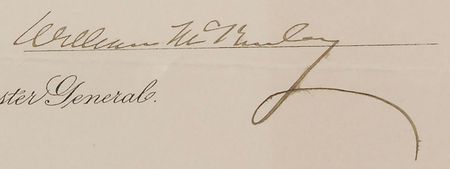 William McKinley
ster General.